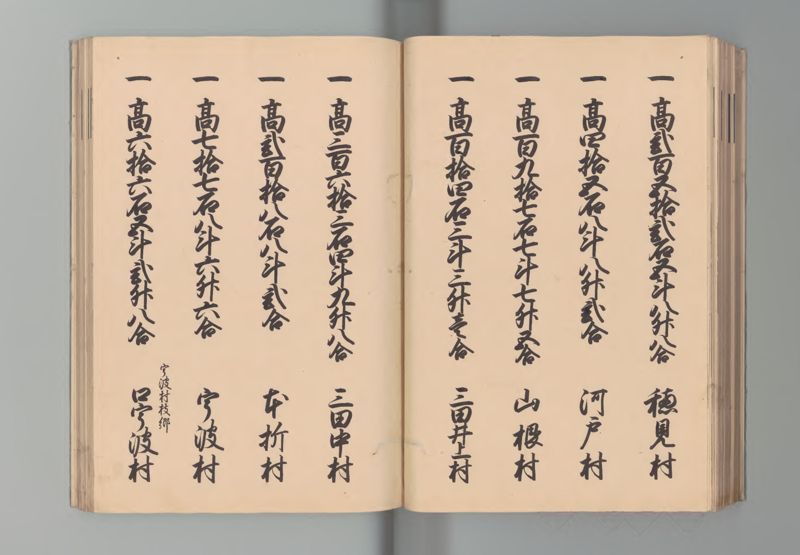 一 高弐百五拾弐石五斗八升八合 穂見村
一 高四拾五石八斗八升弐合 河戸村
一 高百九拾七石七斗七升五合 山根村
一 高百拾四石三斗三升壱合 三田井上村
一 高三百六拾三石四斗九升八合 三田中村
一 高弐百拾八石八斗弐合 本折村
一 高七拾七石八斗六升六合 宇波村
宇波村枝郷
一 高六拾六石五斗弐升八合 口宇波村